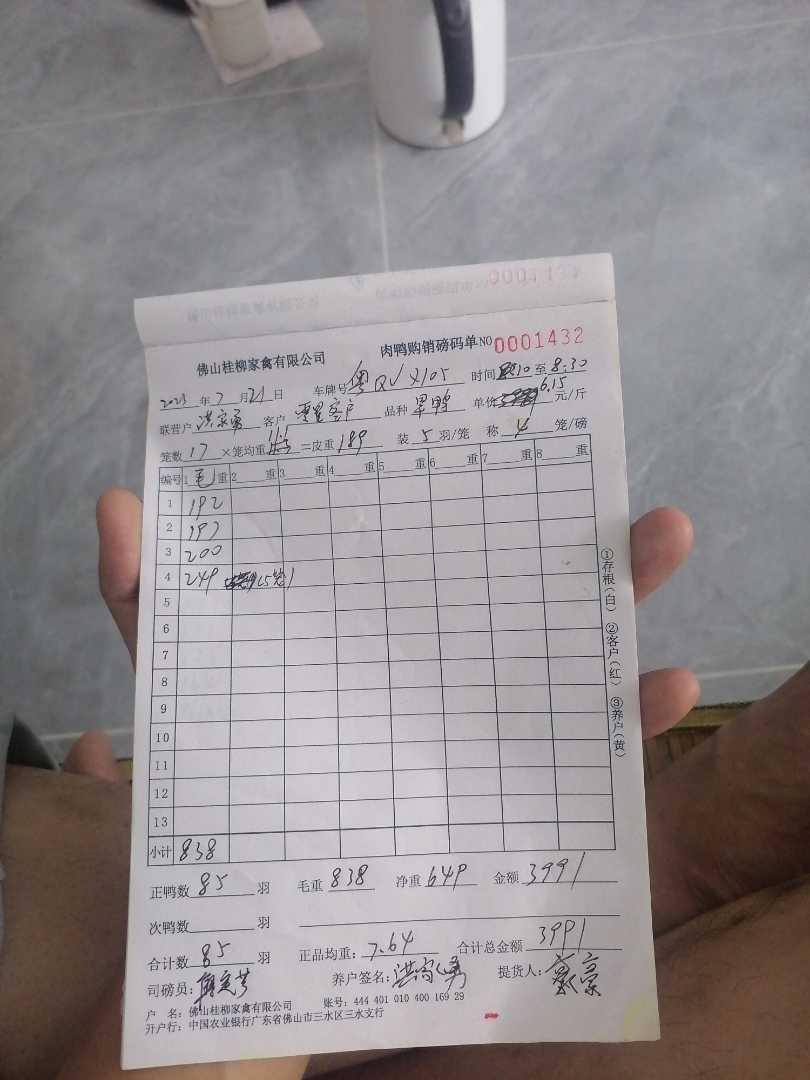 0001432
佛山桂柳家禽有限公司 肉鸭购销磅码单 NO 0001432
2023年7月21日 车牌号 粤 时间 至8:30
联营户 洪家勇 客户 零星客户 品种 单价 6.15 元/斤
笼数 17 ×笼均重 11.1 =皮重 189 装 5 羽/笼 称 4 笼/磅
编号 1 毛 重 2 重 3 重 4 重 5 重 6 重 7 重 8 重
1 192
2 197
3 200
4 249 (5笼)
5
6
7
8
9
10
11
12
13
小计 838
①存根(白) ②客户(红) ③养户(黄)
正鸭数 85 羽 毛重 838 净重 649 金额 3991
次鸭数 羽
合计数 85 羽 正品均重: 7.64 合计总金额 3991
司磅员: 养户签名: 洪家勇 提货人:
户 名: 佛山桂柳家禽有限公司 账号: 444 401 010 400 169 29
开户行: 中国农业银行广东省佛山市三水区三水支行